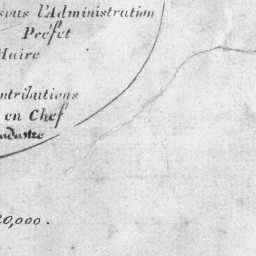 sous l'Administration
Préfet
Maire
ntributions
en Chef
adastre
20,000.